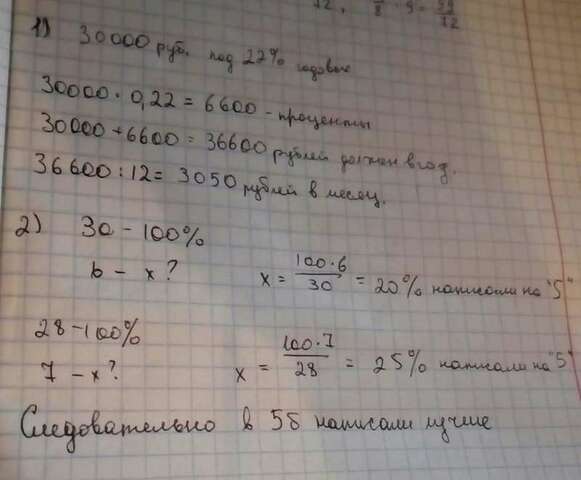 12, 7/8 · 9 = 59/12
1) 30000 руб. под 22% годовых
30000 · 0,22 = 6600 - проценты
30000 + 6600 = 36600 рублей должен в год.
36600 : 12 = 3050 рублей в месяц.
2) 30 - 100%
6 - x? x = 100·6/30 = 20% написали на "5"
28 - 100%
7 - x? x = 100·7/28 = 25% написали на "5"
Следовательно в 5б написали лучше